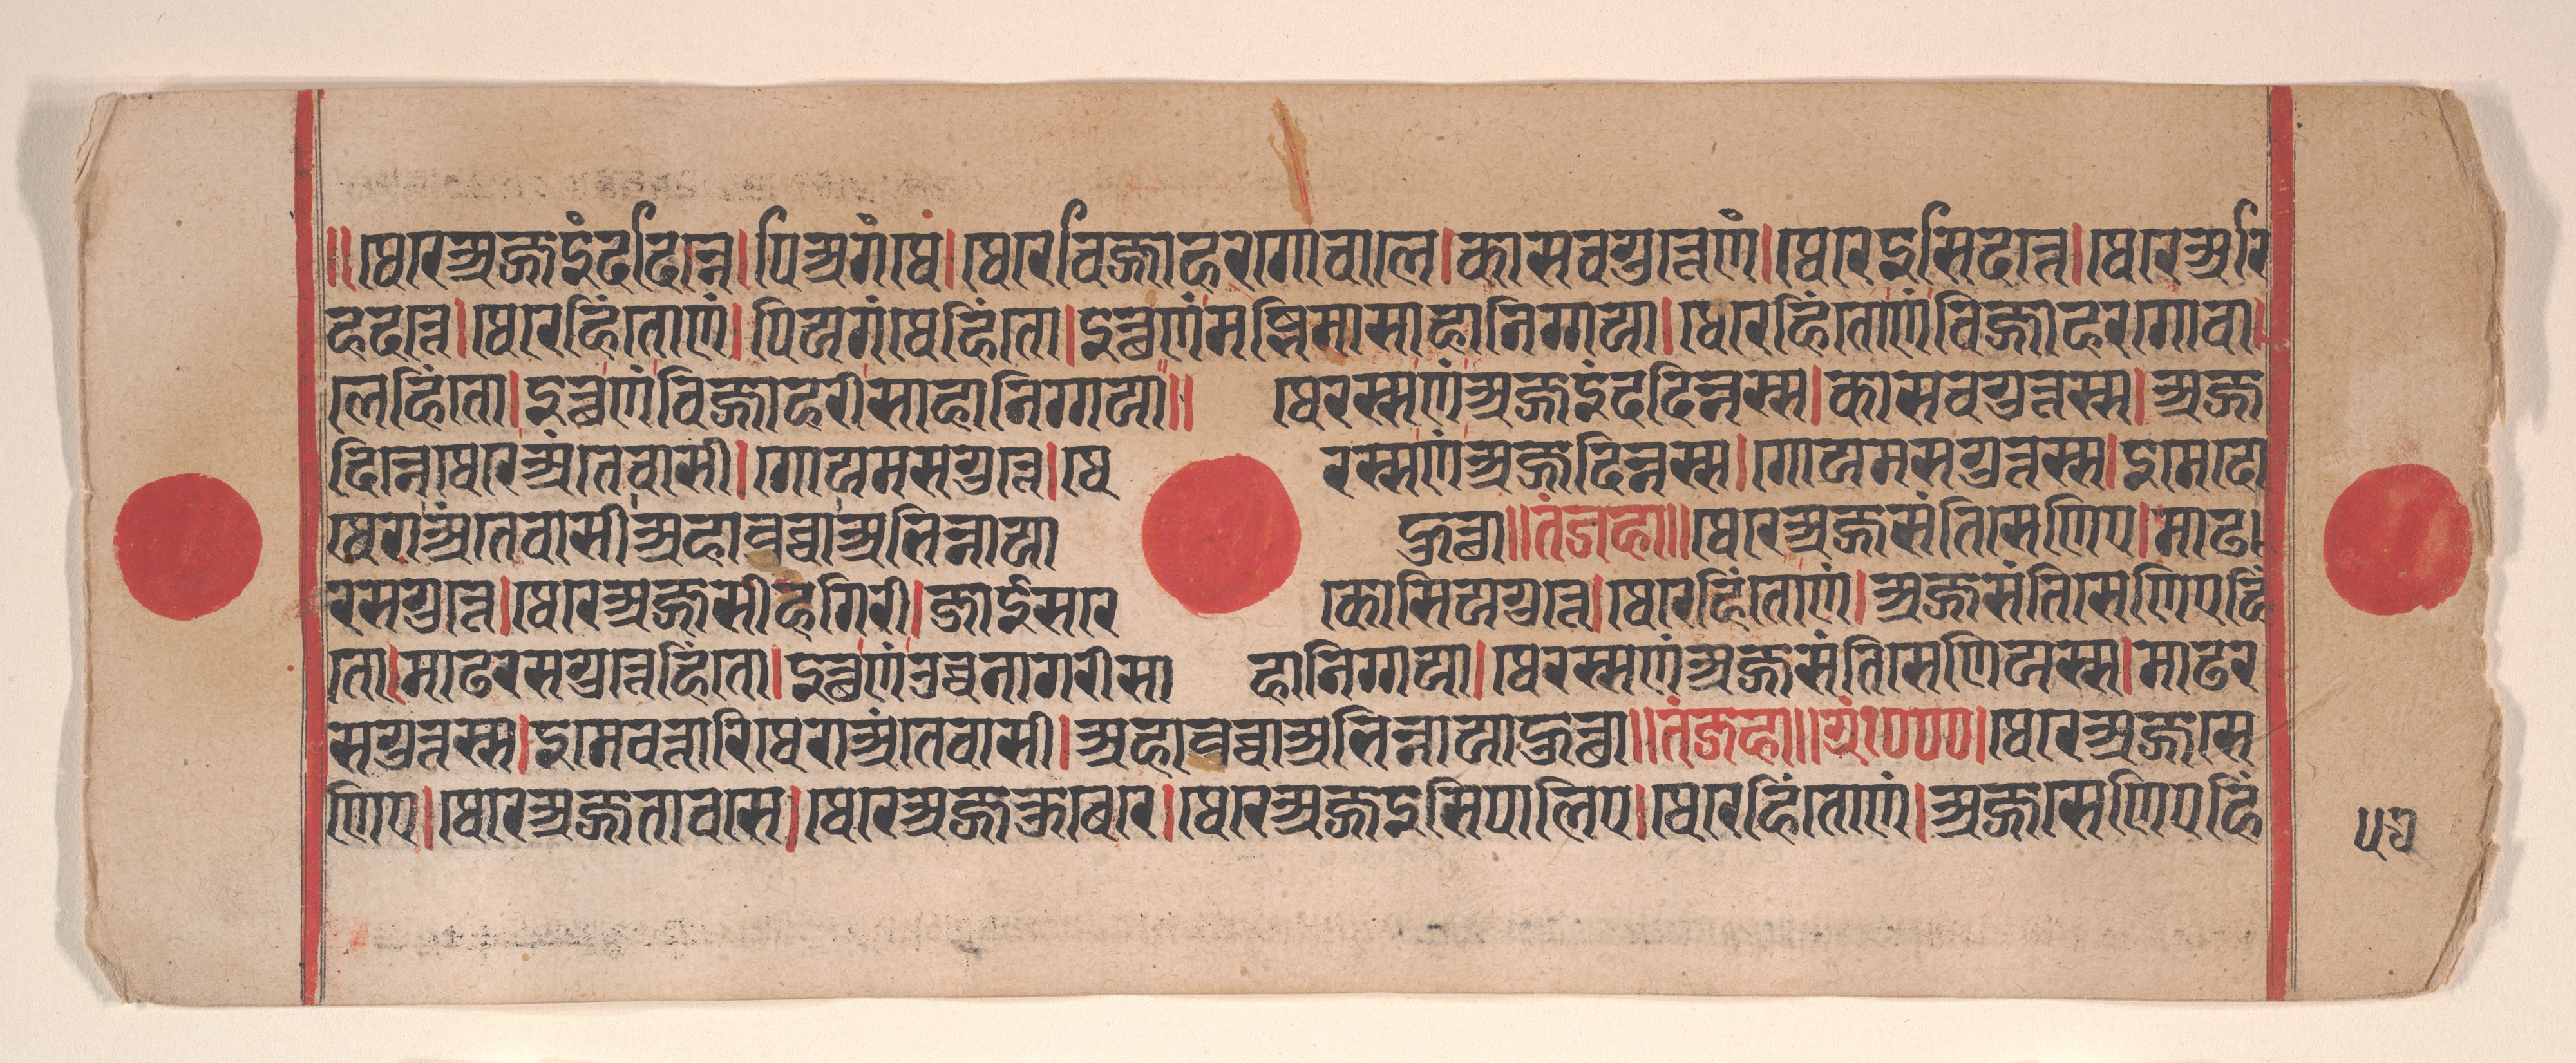 ॥थेरेअज्जइंददिन्ने।पिअगंथे।थेरेविज्जाहरगोवाले।कासवगुत्तेणं।थेरेइसिदत्ते।थेरेअरि
हदत्ते।थेरेहिंतोणं।पियगंथेहिंतो।इत्थणंमज्झिमासाहानिग्गया।थेरेहिंतोणंविज्जाहरगोवा
लेहिंतो।इत्थणंविज्जाहरीसाहानिग्गया॥ थेरस्सणंअज्जइंददिन्नस्स।कासवगुत्तस्स।अज्ज
दिन्नेथेरेअंतेवासी।गोयमसगुत्ते।थे रस्सणंअज्जदिन्नस्स।गोयमसगुत्तस्स।इमेदो
थेराअंतेवासीअहावच्चाअभिन्नाया हुत्था॥तंजहा॥थेरेअज्जसंतिसेणिए।माढ
रसगुत्ते।थेरेअज्जसीहगिरी।जाईसरे कोसियगुत्ते।थेरेहिंतोणं।अज्जसंतिसेणिएहिं
तो।माढरसगुत्तेहिंतो।इत्थणंउच्चनागरीसा हानिग्गया।थेरस्सणंअज्जसंतिसेणियस्स।माढर
सगुत्तस्स।इमेचत्तारिथेराअंतेवासी।अहावच्चाअभिन्नायाहुत्था॥तंजहा॥ग्रं१०००।थेरेअज्जसे
णिए।थेरेअज्जतावसे।थेरेअज्जकुबेरे।थेरेअज्जइसिपालिए।थेरेहिंतोणं।अज्जसेणिएहिं
५३